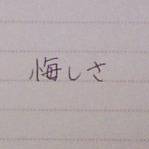 悔しさ